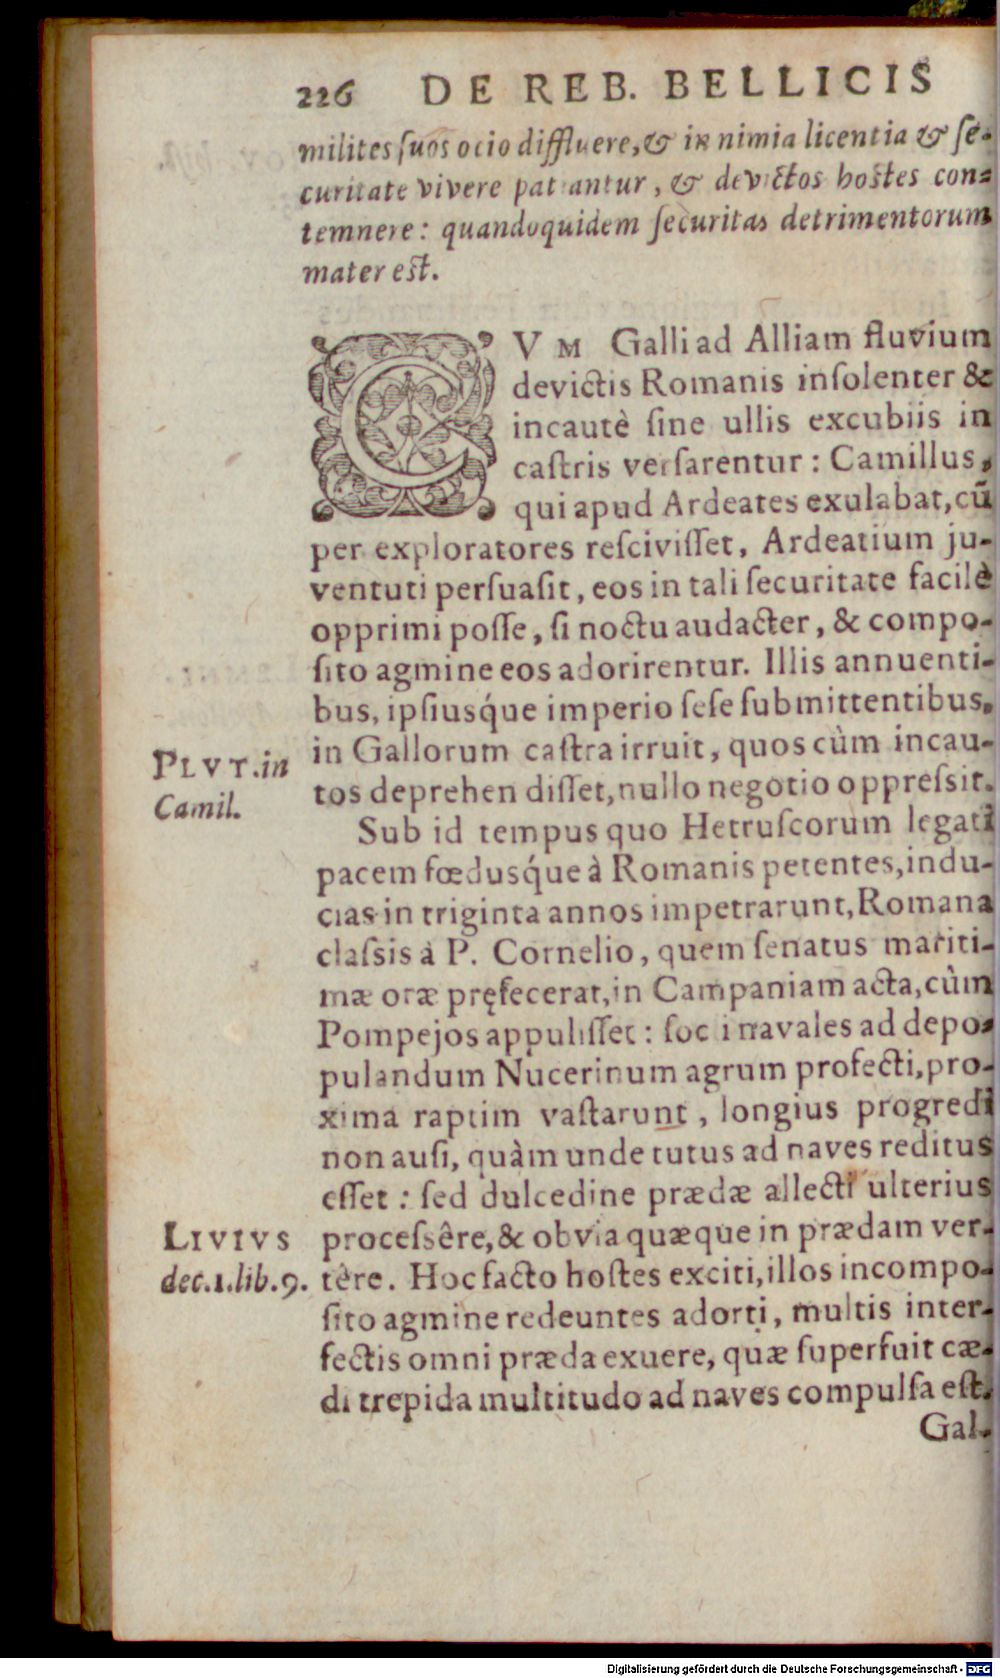 226 DE REB. BELLICIS
milites suos ocio diffluere, & in nimia licentia & se-
curitate vivere patiantur, & devictos hostes con-
temnere: quandoquidem securitas detrimentorum
mater est.
CVM Galli ad Alliam fluvium
devictis Romanis insolenter &
incautè sine ullis excubiis in
castris versarentur: Camillus,
qui apud Ardeates exulabat, cū
per exploratores rescivisset, Ardeatium ju-
ventuti persuasit, eos in tali securitate facilè
opprimi posse, si noctu audacter, & compo-
sito agmine eos adorirentur. Illis annuenti-
bus, ipsiusq́ue imperio sese submittentibus,
in Gallorum castra irruit, quos cùm incau-
PLVT. in
Camil.
tos deprehendisset, nullo negotio oppressit.
Sub id tempus quo Hetruscorum legati
pacem fœdusq́ue à Romanis petentes, indu-
cias in triginta annos impetrarunt, Romana
classis à P. Cornelio, quem senatus mariti-
mæ oræ pręfecerat, in Campaniam acta, cùm
Pompejos appulisset: socii navales ad depo-
pulandum Nucerinum agrum profecti, pro-
xima raptim vastarunt, longius progredi
non ausi, quàm unde tutus ad naves reditus
esset: sed dulcedine prædæ allecti ulterius
LIVIVS
dec.1.lib.9.
processêre, & obvia quæque in prædam ver-
têre. Hoc facto hostes exciti, illos incompo-
sito agmine redeuntes adorti, multis inter-
fectis omni præda exuere, quæ superfuit cæ-
di trepida multitudo ad naves compulsa est.
Gal-
Digitalisierung gefördert durch die Deutsche Forschungsgemeinschaft - DFG